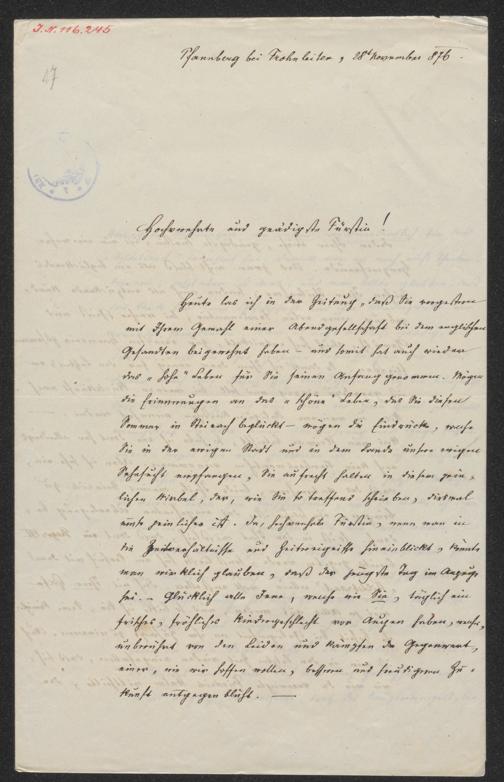 I.N. 116.245
Pfannberg bei Frohnleiten, 28t November 876.
Hochverehrte und gnädigste Fürstin!
Heute las ich in der Zeitung, daß Sie vorgestern
mit Ihrem Gemahl einer Abendgesellschaft bei dem englischen
Gesandten beigewohnt haben – und somit hat auch wieder
das „hohe" Leben für Sie seinen Anfang genommen. Mögen
die Erinnerungen an das „schöne" Leben, das Sie diesen
Sommer in beglückt – mögen die Eindrücke, welche
Sie in der ewigen Stadt und in dem Lande unserer ewigen
Sehnsucht empfangen, Sie aufrecht halten in diesem pein-
lichen Wirbel, der, wie Sie so treffend schreiben, diesmal
peinlicher ist. Ja, hochverehrte Fürstin, wenn man in
die Zeitverhältnisse und Zeitereignisse hineinblickt, könnte
man wirklich glauben, daß der jüngste Tag im Anzuge
sei. – Glücklich alle Jene, welche wie Sie, täglich ein
frisches, fröhliches Kindergeschlecht vor Augen haben, welches,
unberührt von den Leiden und Kämpfen der Gegenwart,
einer, wie wir hoffen wollen, besseren und freudigeren Zu-
kunft entgegen blüht. —